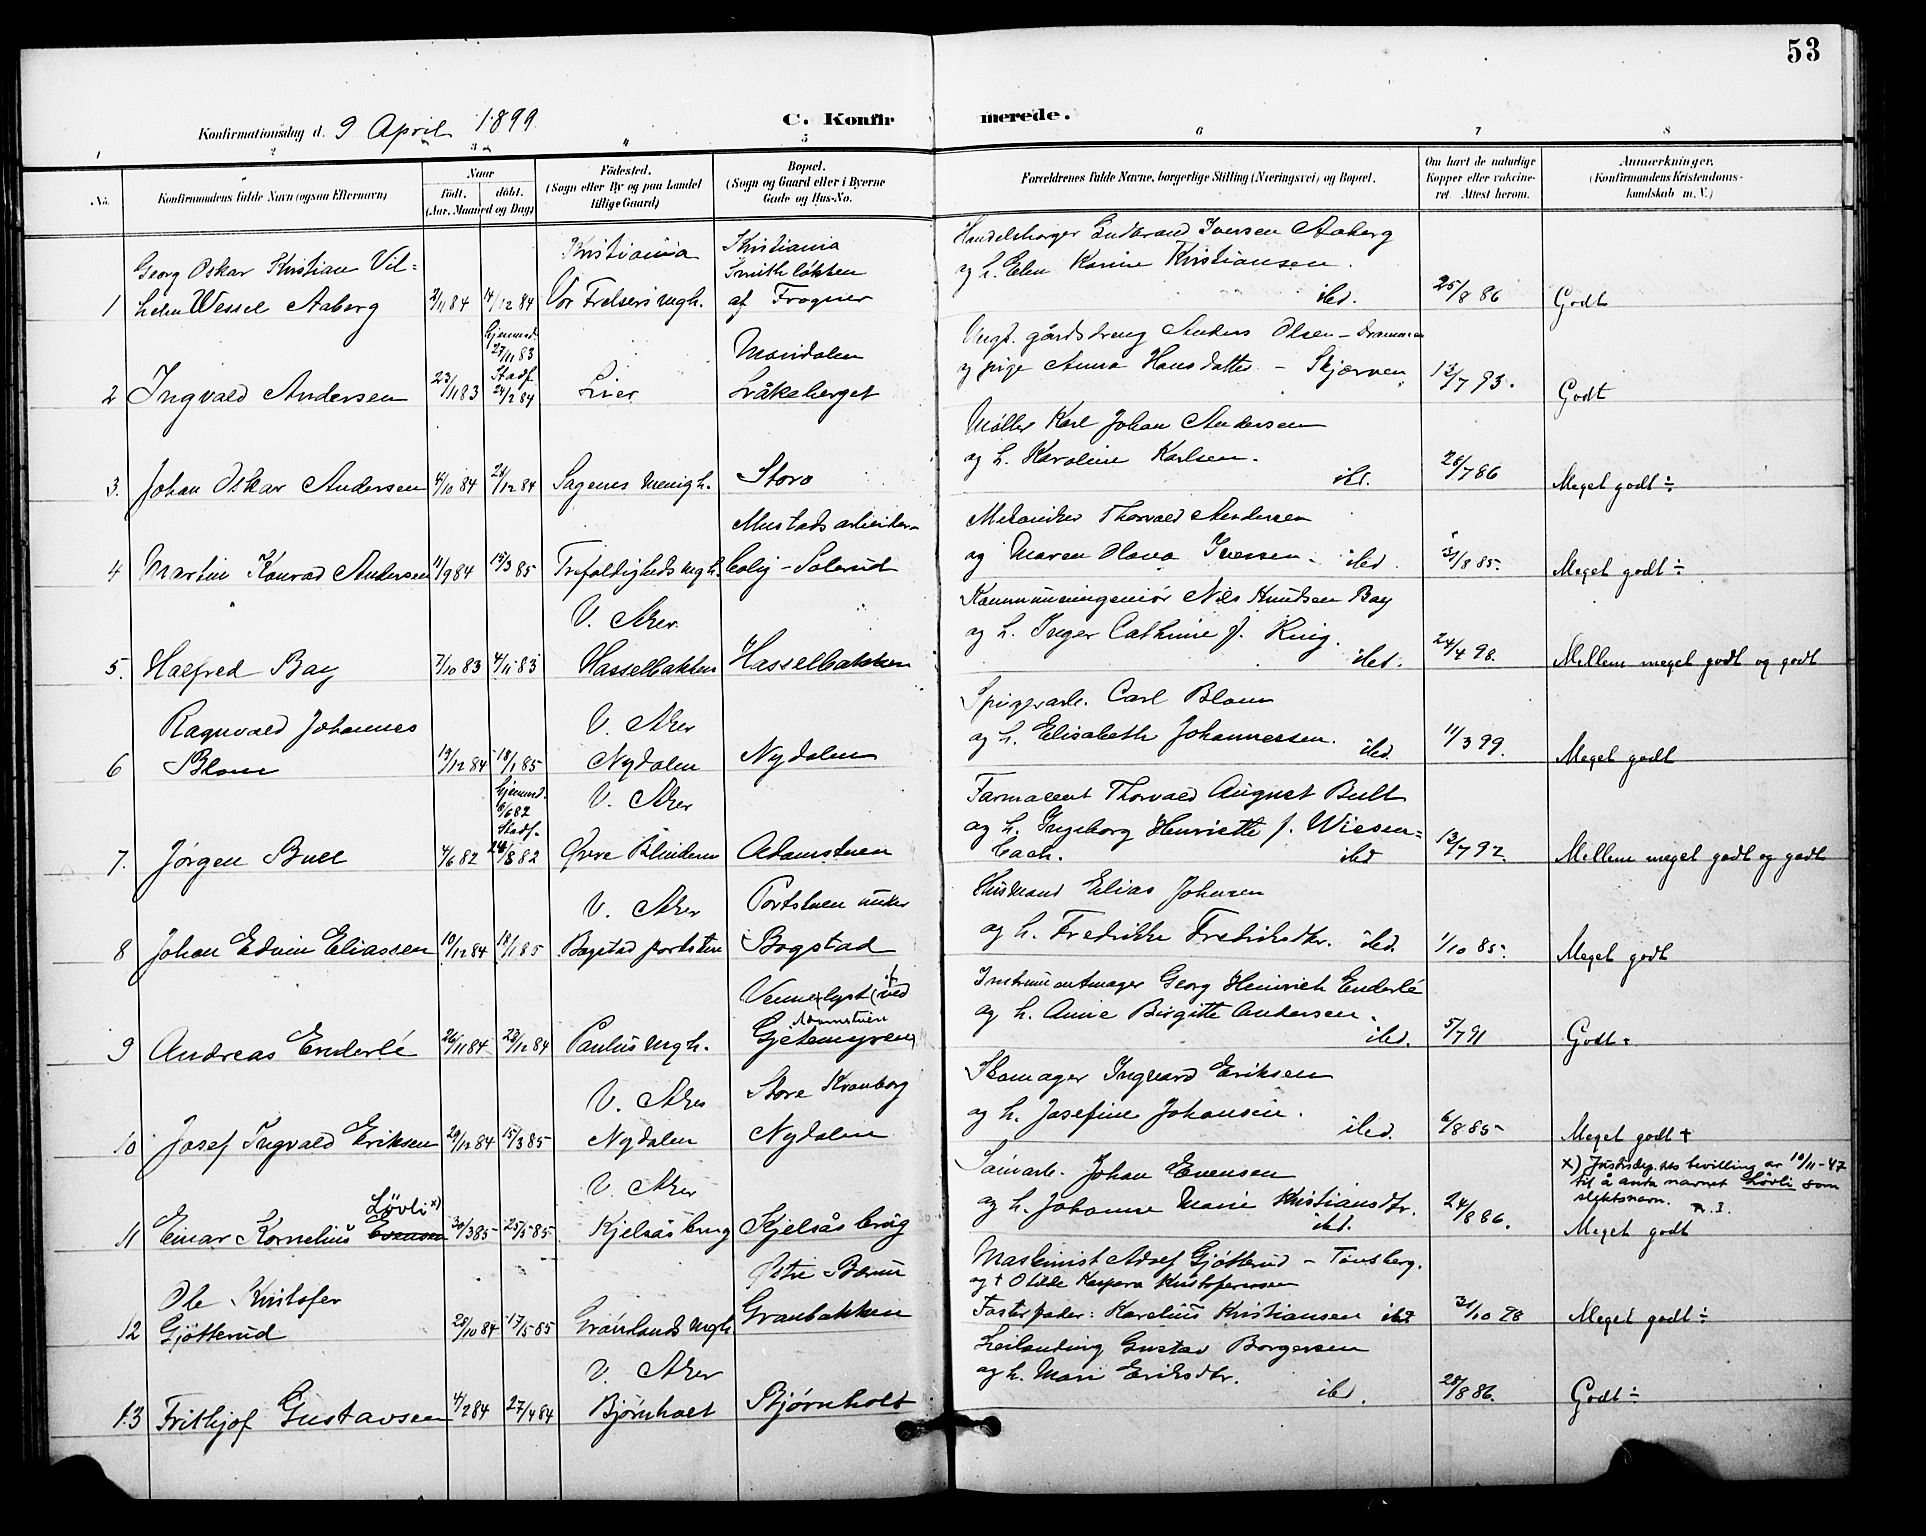 53
Konfirmationsdag d. 9 April 1899.
C. Konfirmerede.
1 2 3 4 5 6 7 8
No.
Konfirmandens fulde Navn (ogsaa Efternavn)
Naar
födt. döbt.
(Aar, Maaned og Dag)
Födested.
(Sogn eller By og paa Landet
tillige Gaard)
Bopæl.
(Sogn og Gaard eller i Byerne
Gade og Hus-No.
Forældrenes fulde Navne, borgerlige Stilling (Næringsvei) og Bopæl.
Om havt de naturlige
Kopper eller vaccine-
ret. Attest herom.
Anmærkninger.
(Konfirmandens Kristendoms-
kundskab m. V.)
Georg Oskar Kristian Vil=
1 helm Wessel Aaberg 2/11 84 14/12 84
Kristiania
Vor Frelsers mgh.
Kristiania
Smithløkken
af Frogner
Handelsborger Gudbrand Iversen Aaberg
og h. Elen Karine Kristiansen.
ibd. 25/8 86 Godt
2 Ingvald Andersen 23/11 83
Hjemmd.
27/11 83
Stadf.
24/2 84
Lier
Maridalen
Låkeberget
Ungk. gårdsdreng Anders Olsen - Drammen
og pige Anna Hansdatter - Skjærven 13/7 93. Godt
3. Johan Oskar Andersen 4/10 84 28/12 84 Sagenes menigh. Storo
Møller Karl Johan Andersen
og h. Karoline Karlsen.
ibd. 26/7 86 Meget godt ÷
4 Martin Konrad Andersen 11/9 84 15/3 85 Trefoldigheds mgh.
Mustads arbeider-
bolig - Solerud
Mekaniker Thorvald Andersen
og Maren Olava Iversen. ibd. 31/8 85. Meget godt ÷
5. Halfred Bay 7/10 83 4/11 83
V. Aker
Hasselbakken Hasselbakken
Kommuneingeniør Nils Knudsen Bay
og h. Inger Cathrine f. Ring.
ibd. 24/4 98. Mellem meget godt og godt
Ragnvald Johannes
6 Blom 19/12 84 18/1 85
V. Aker
Nydalen Nydalen
Spigerarb. Carl Blom
og h. Elisabeth Johannessen. ibd. 11/3 99. Meget godt
7. Jørgen Bull 4/6 82
Hjemmd.
6/6 82
Stadf.
24/8 82
V. Aker
Øvre Blindern Adamstuen
Farmaceut Thorvald August Bull
og h. Ingeborg Henriette f. Wiesen=
bach. ibd 13/7 92. Mellem meget godt og godt
8 Johan Edvin Eliassen 10/12 84 18/1 85
V. Aker
Bogstad portstue
Portstuen under
Bogstad
Husmand Elias Johnsen
og h. Fredrikke Fredriksdtr. ibd. 1/10 85. Meget godt
9 Andreas Enderlé 26/11 84 28/12 84 Paulus mgh.
Vennelyst (ved
Adamstuen
Gjetemyren)
Instrumentmager Georg Heinrich Enderlé
og h. Anne Birgitte Andersen.
ibd. 5/7 91 Godt.
10 Josef Ingvald Eriksen 29/12 84 15/3 85
V. Aker
Nydalen
Store Kranborg
Nydalen
Skomager Ingvard Eriksen
og h. Josefine Johansen.
ibd. 6/8 85 Meget godt +
x) Justisdep.ts bevilling av 10/11-47
til å anta navnet Lövli som
slektsnavn.
Lövli x)
11 Einar Kornelius Evensen 30/3 85 25/5 85
V. Aker
Kjelsås brug Kjelsås brug
Sömarb. Johan Evensen
og h. Johanne Marie Kristiansdtr.
ibd. 24/8 86. Meget godt
Ole Kristofer
12 Gjötterud 28/10 84 17/5 85 Grønlands mgh.
Østre Bærum
Granbakken
Maskinist Adolf Gjøtterud - Tönsberg.
og + Otilde Kaspara Kristofersen
Fosterfader: Karelius Kristiansen ibd 31/10 98 Meget godt ÷
13 Frithjof Gustavsen 4/2 84 27/4 84
V. Aker
Bjørnholt Bjørnholt
Leilending Gustav Borgersen
og h. Mari Eriksdtr.
ibd. 28/8 86. Godt ÷